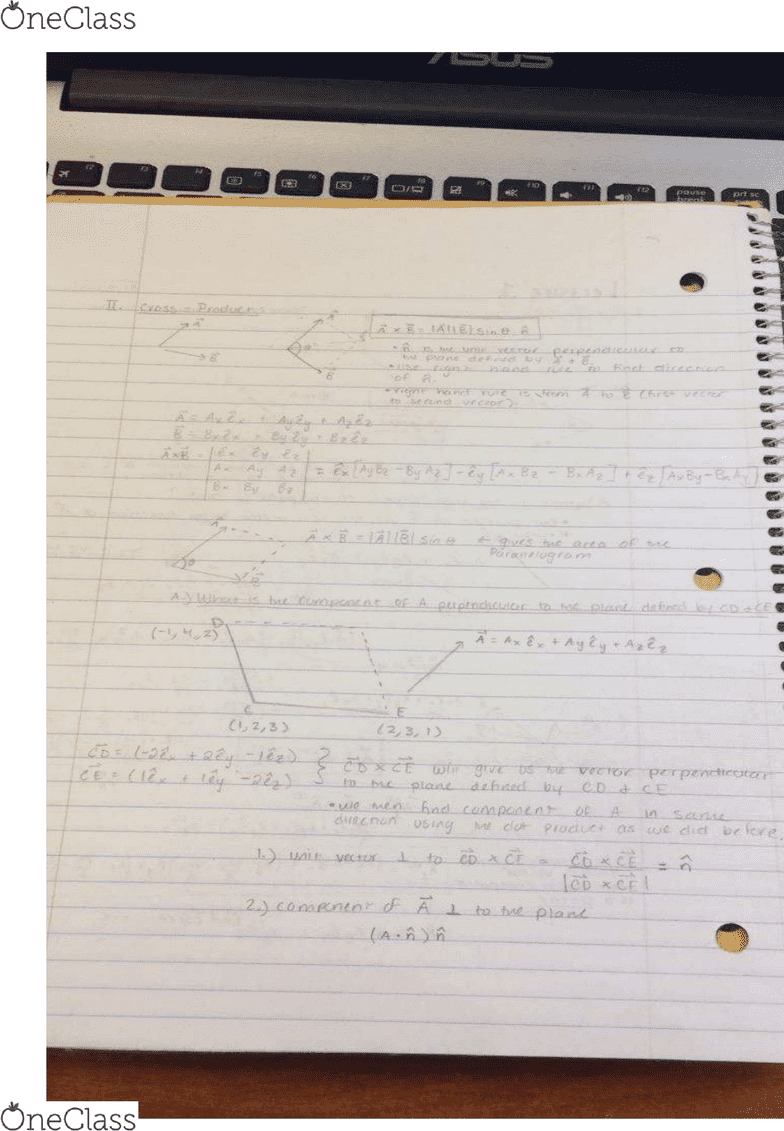 OneClass
ASUS
F2 F3 F4 F5 F6 F7 F8 F9 F10 F11 F12 pause break prt sc
II. Cross-Products
A⃗
B⃗
A⃗
θ
B⃗
A⃗ × B⃗ = |A⃗||B⃗| sin θ n̂
• n̂ is the unit vector perpendicular to
the plane defined by A⃗ + B⃗
• use right hand rule to find direction
of n̂.
• right hand rule is from A⃗ to B⃗ (first vector
to second vector).
A⃗ = Axêx + Ayêy + Azêz
B⃗ = Bxêx + Byêy + Bzêz
A⃗×B⃗ = | êx êy êz |
| Ax Ay Az | = êx[AyBz - ByAz] - êy[AxBz - BxAz] + êz[AxBy - BxAy]
| Bx By Bz |
A⃗
θ
B⃗
A⃗ × B⃗ = |A⃗||B⃗| sin θ ← gives the area of the
Paranelogram
A.) What is the component of A perpendicular to the plane defined by CD + CE
D
(-1, 4, 2)
A⃗ = Axêx + Ayêy + Azêz
C
E
(1, 2, 3)
(2, 3, 1)
CD⃗ = (-2êx + 2êy - 1êz)
CE⃗ = (1êx + 1êy - 2êz)
} CD⃗ × CE⃗ will give us the vector perpendicular
to the plane defined by CD + CE
• we then find component of A in same
direction using the dot product as we did before.
1.) unit vector ⊥ to CD⃗ × CE⃗ = CD⃗ × CE⃗ = n̂
|CD⃗ × CE⃗|
2.) component of A⃗ ⊥ to the plane
(A · n̂) n̂
OneClass